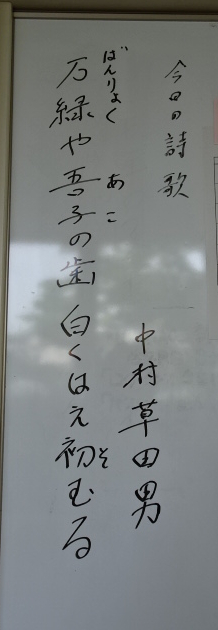 今日の詩歌
中村草田男
ばんりょく あこ そ
万緑や吾子の歯白くはえ初むる